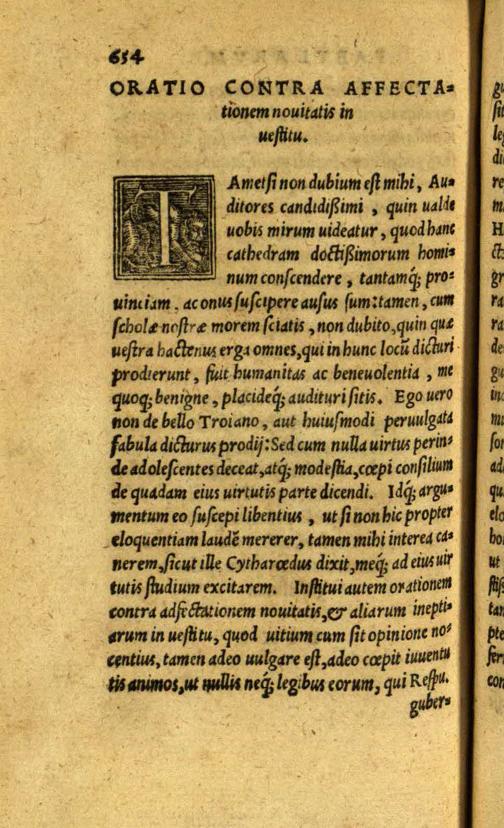 654
ORATIO CONTRA AFFECTA-
tionem nouitatis in
ueſtitu.
TAmetſi non dubium eſt mihi, Au-
ditores candidißimi, quin ualde
uobis mirum uideatur, quod hanc
cathedram doctißimorum homi-
num conſcendere, tantamq́; pro-
uinciam, ac onus ſuſcipere auſus ſum: tamen, cum
ſcholæ noſtræ morem ſciatis, non dubito, quin quæ
ueſtra hactenus erga omnes, qui in hunc locū dicturi
prodierunt, fuit humanitas ac beneuolentia, me
quoq; benigne, placideq́; audituri ſitis. Ego uero
non de bello Troiano, aut huiuſmodi peruulgata
fabula dicturus prodij: Sed cum nulla uirtus perin-
de adoleſcentes deceat, atq; modeſtia, cœpi conſilium
de quadam eius uirtutis parte dicendi. Idq́; argu-
mentum eo ſuſcepi libentius, ut ſi non hic propter
eloquentiam laudē mererer, tamen mihi interea ca-
nerem, ſicut ille Cytharœdus dixit, meq́; ad eius uir
tutis ſtudium excitarem. Inſtitui autem orationem
contra adfectationem nouitatis, & aliarum inepti-
arum in ueſtitu, quod uitium cum ſit opinione no-
centius, tamen adeo uulgare eſt, adeo cœpit iuuentu
tis animos, ut nullis neq́; legibus eorum, qui Reſpu.
guber-